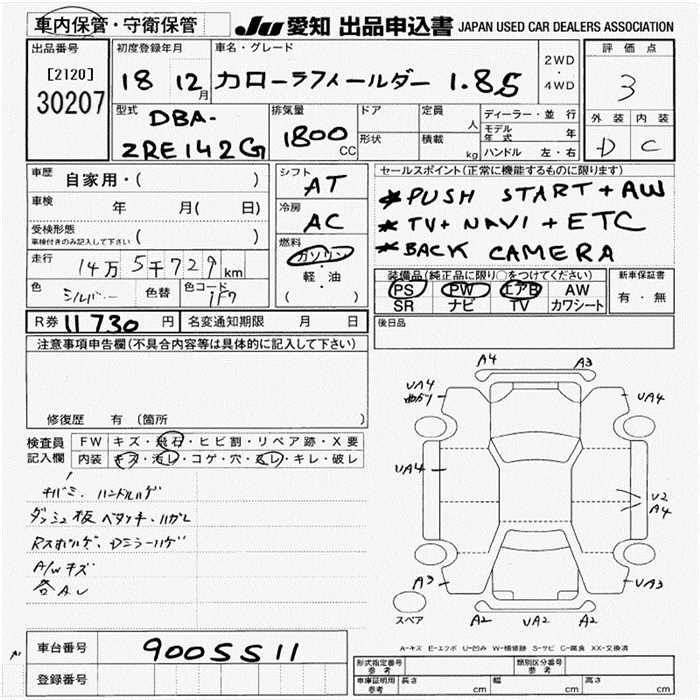 車内保管・守衛保管
JU 愛知 出品申込書 JAPAN USED CAR DEALERS ASSOCIATION
出品番号
[2120]
30207
初度登録年月
18 12月
車名・グレード
カローラフィールダー 1.8S
2WD
・
4WD
評価点
3
外装 内装
D C
型式
DBA-
ZRE142G
排気量
1800
CC
ドア
形状
定員
人
積載
kg
ディーラー・並行
モデル年式 年
ハンドル 左・右
車歴 自家用・( )
車検 年 月( 日)
受検形態
車検付きのみ記入して下さい ( )
走行 14万5千729km
色 シルバー 色替 色コード 1F7
シフト
AT
冷房
AC
燃料
ガソリン
軽・油
( )
セールスポイント(正常に機能するものに限ります)
*PUSH START+AW
*TV+NAVI+ETC
*BACK CAMERA
装備品(純正品に限り○をつけてください)
PS PW エアB AW
SR ナビ TV カワシート
新車保証書
有・無
R券 11730 円 名変通知期限 月 日
後日品
注意事項申告欄(不具合内容等は具体的に記入して下さい)
修復歴 有 (箇所 )
検査員
記入欄
FW キズ・飛石・ヒビ割・リペア跡・X要
内装 キズ・汚レ・コゲ・穴・スレ・キレ・破レ
ハンドルハゲ
ダッシュ板 ベタツキ・ハガレ
Dミラーハゲ
A/Wキズ
各AU
A4 A3
UA4
曲がり
UA4
UA4
U2
A4
A3
UA3
A2 UA2 A2
スペア
A-キズ E-エクボ U-凹み W-補修跡 S-サビ C-腐食 XX-交換済
車台番号 9005511
登録番号
形式指定番号
参考
類別区分番号
参考
車庫証明用
参考
長さ cm 幅 cm 高さ cm